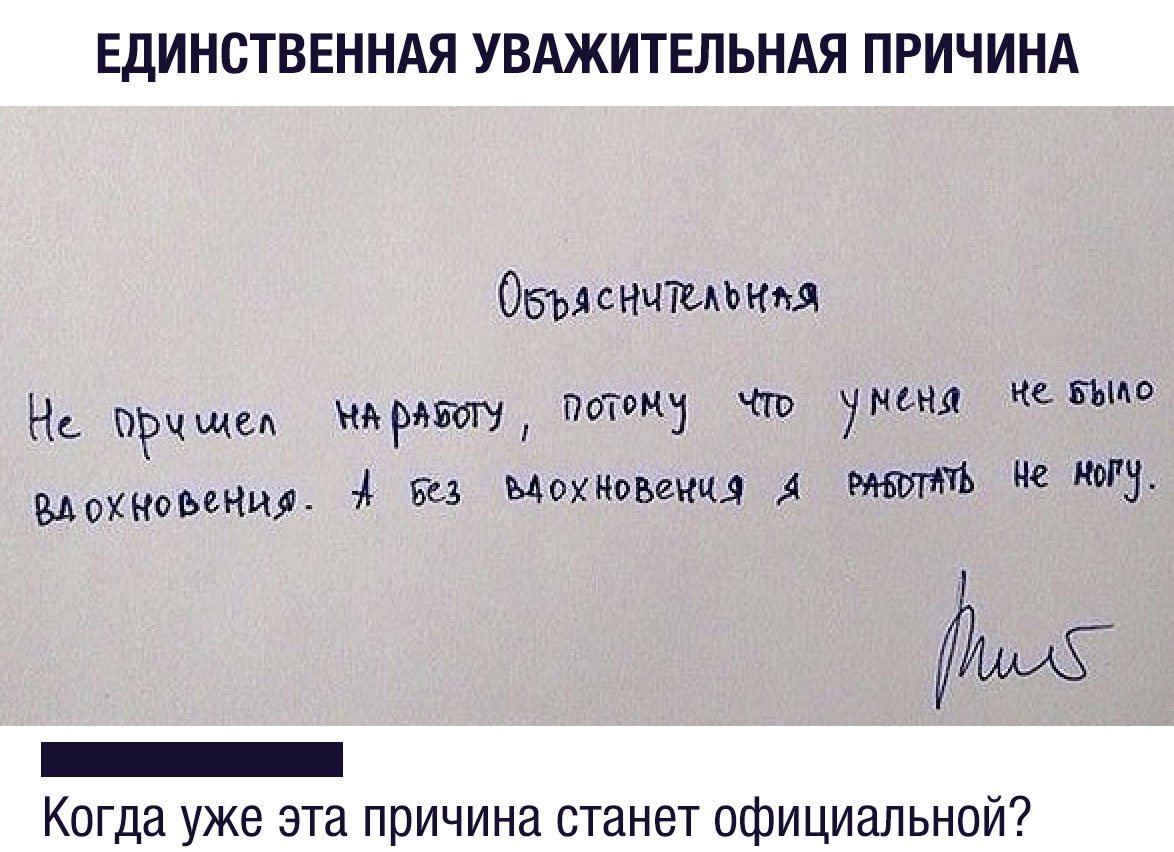 ЕДИНСТВЕННАЯ УВАЖИТЕЛЬНАЯ ПРИЧИНА
Объяснительная
Не пришел на работу, потому что у меня не было
вдохновения. А без вдохновения я работать не могу.
Когда уже эта причина станет официальной?